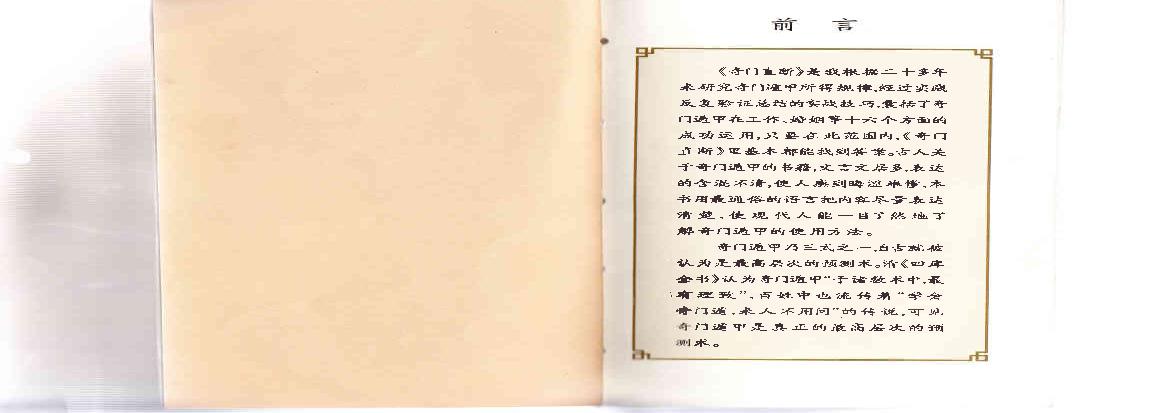 前 言
《奇门直断》是我根据二十多年
来研究奇门遁甲所得规律,经过实践
反复验证总结的实战技巧,囊括了奇
门遁甲在工作、婚姻等十六个方面的
成功运用,只要在此范围内,《奇门
直断》里基本都能找到答案。古人关
于奇门遁甲的书籍,文言文居多,表达
的含混不清,使人感到晦涩难懂,本
书用最通俗的语言把内容尽量表达
清楚、使现代人能一目了然地了
解奇门遁甲的使用方法。
奇门遁甲乃三式之一,自古就被
认为是最高层次的预测术。清《四库
全书》认为奇门遁甲“于诸数术中,最
有理致”、百姓中也流传着“学会
奇门遁,来人不用问”的传说,可见
奇门遁甲是真正的最高层次的预
测术。